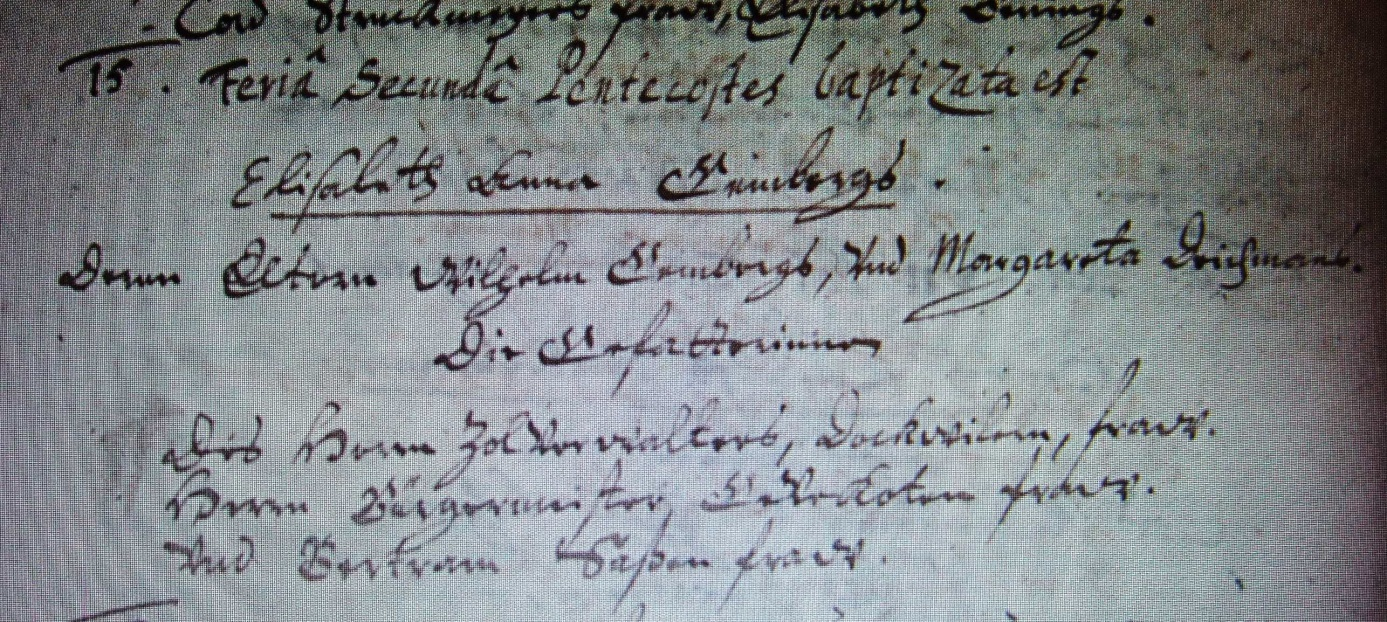 Cord Struckmeyers fraw, Elisabeth Bennings.
15. Feriâ Secundâ Pentecostes baptizata est
Elisabeth Anna
Deren Eltern Wilhelm und Margareta Deichmans.
Die Gefatterinnen
Des Herrn Zolverwalters, fraw.
Herrn Bürgermeister, fraw.
Und Bertram Saßen fraw.